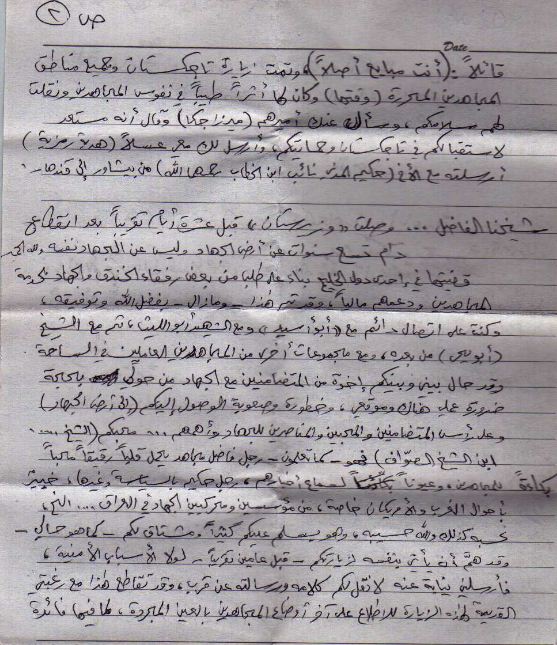 ص ٢
Date
قائلاً: (أنت مبايع أصلاً) وتمت زيارة تاجكستان وجميع مناطق
المجاهدين المحررة (وقتها) وكان لها أثراً طيباً في نفوس المجاهدين ونقلت
لهم سلامكم، وسأل عنك أميرهم (ميرزا جكا) وقال أنه مستعد
لاستقبالكم في تاجكستان وحمايتكم، وأرسل لك معي عسلاً (هدية رمزية)
أرسلته مع الأخ (حكيم المدني نائب ابن الخطاب رحمهما الله) من بيشاور إلى قندهار.
شيخنا الفاضل ... وصلت وزيرستان، قبل عشرة أيام تقريباً بعد انقطاع
دام تسع سنوات عن أرض الجهاد وليس عن الجهاد نفسه ولله الحمد
قضيتها في إحدى دول الخليج بناء على طلب من بعض رفقاء الخندق والجهاد لخدمة
المجاهدين ودعمهم مالياً، وقد تم هذا - ومازال - بفضل الله وتوفيقه،
وكنت على اتصال دائم مع (أبو أسيد) ومع الشهيد أبو الليث، ثم مع الشيخ
(أبو يحيى) من بعده، ومع مجموعات أخرى من المجاهدين العاملين في الساحة
وقد حال بيني وبينكم إخوة من المتضامنين مع الجهاد من حولي بالحاجة
ضرورة عملي هناك وموقعي، وخطورة وصعوبة الوصول إليكم (إلى أرض الجهاد)
وعلى رأس المتضامنين والمحبين والمناصرين للجهاد وأهله ... محبكم (الشيخ ...
ابن الشيخ الصواف) فهو - كما تعلمون - رجل فاضل مجاهد يحمل قلباً رقيقاً محباً
للمجاهدين، وعيوناً لسماع أخبارهم، رجل حكيم بالسياسة وغيرها، خبير
بأحوال الغرب والأمريكان خاصة، من مؤسسين ومحركين الجهاد في العراق ... الخ،
نحسبه كذلك والله حسيبه، وهو يسلم عليكم كثيراً ومشتاق لكم - كما هو حالي -
وقد همّ أنه يأتي بنفسه لزيارتكم - قبل عامين تقريباً - لولا الأسباب الأمنية،
فأرسلني نيابة عنه لأنقل لكم كلامه ورسالته عن قرب، وقد تقاطع هذا مع رغبتي
القديمة لهذه الزيارة للاطلاع على آخر أوضاع المجاهدين بالعين المجردة، لما فيها فائدة